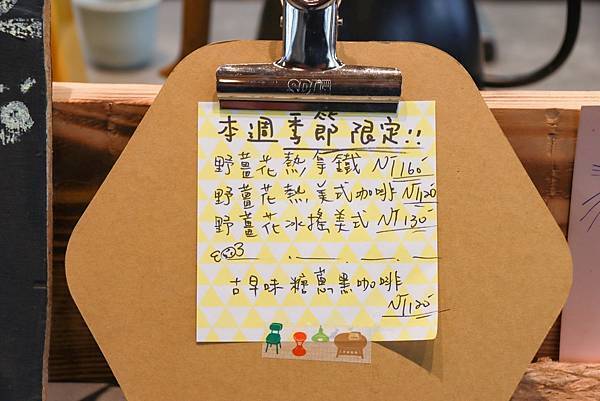 本週季節限定!!
野薑花熱拿鐵 NT160
野薑花熱美式咖啡 NT120
野薑花冰搖美式 NT130
古早味糖蔥黑咖啡
NT120